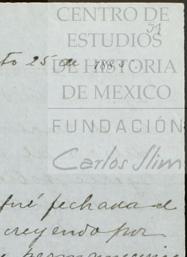 CENTRO DE
ESTUDIOS
to 25 de 1885
DE HISTORIA
DE MEXICO
FUNDACIÓN
Carlos Slim
fué fechada el
creyendo por